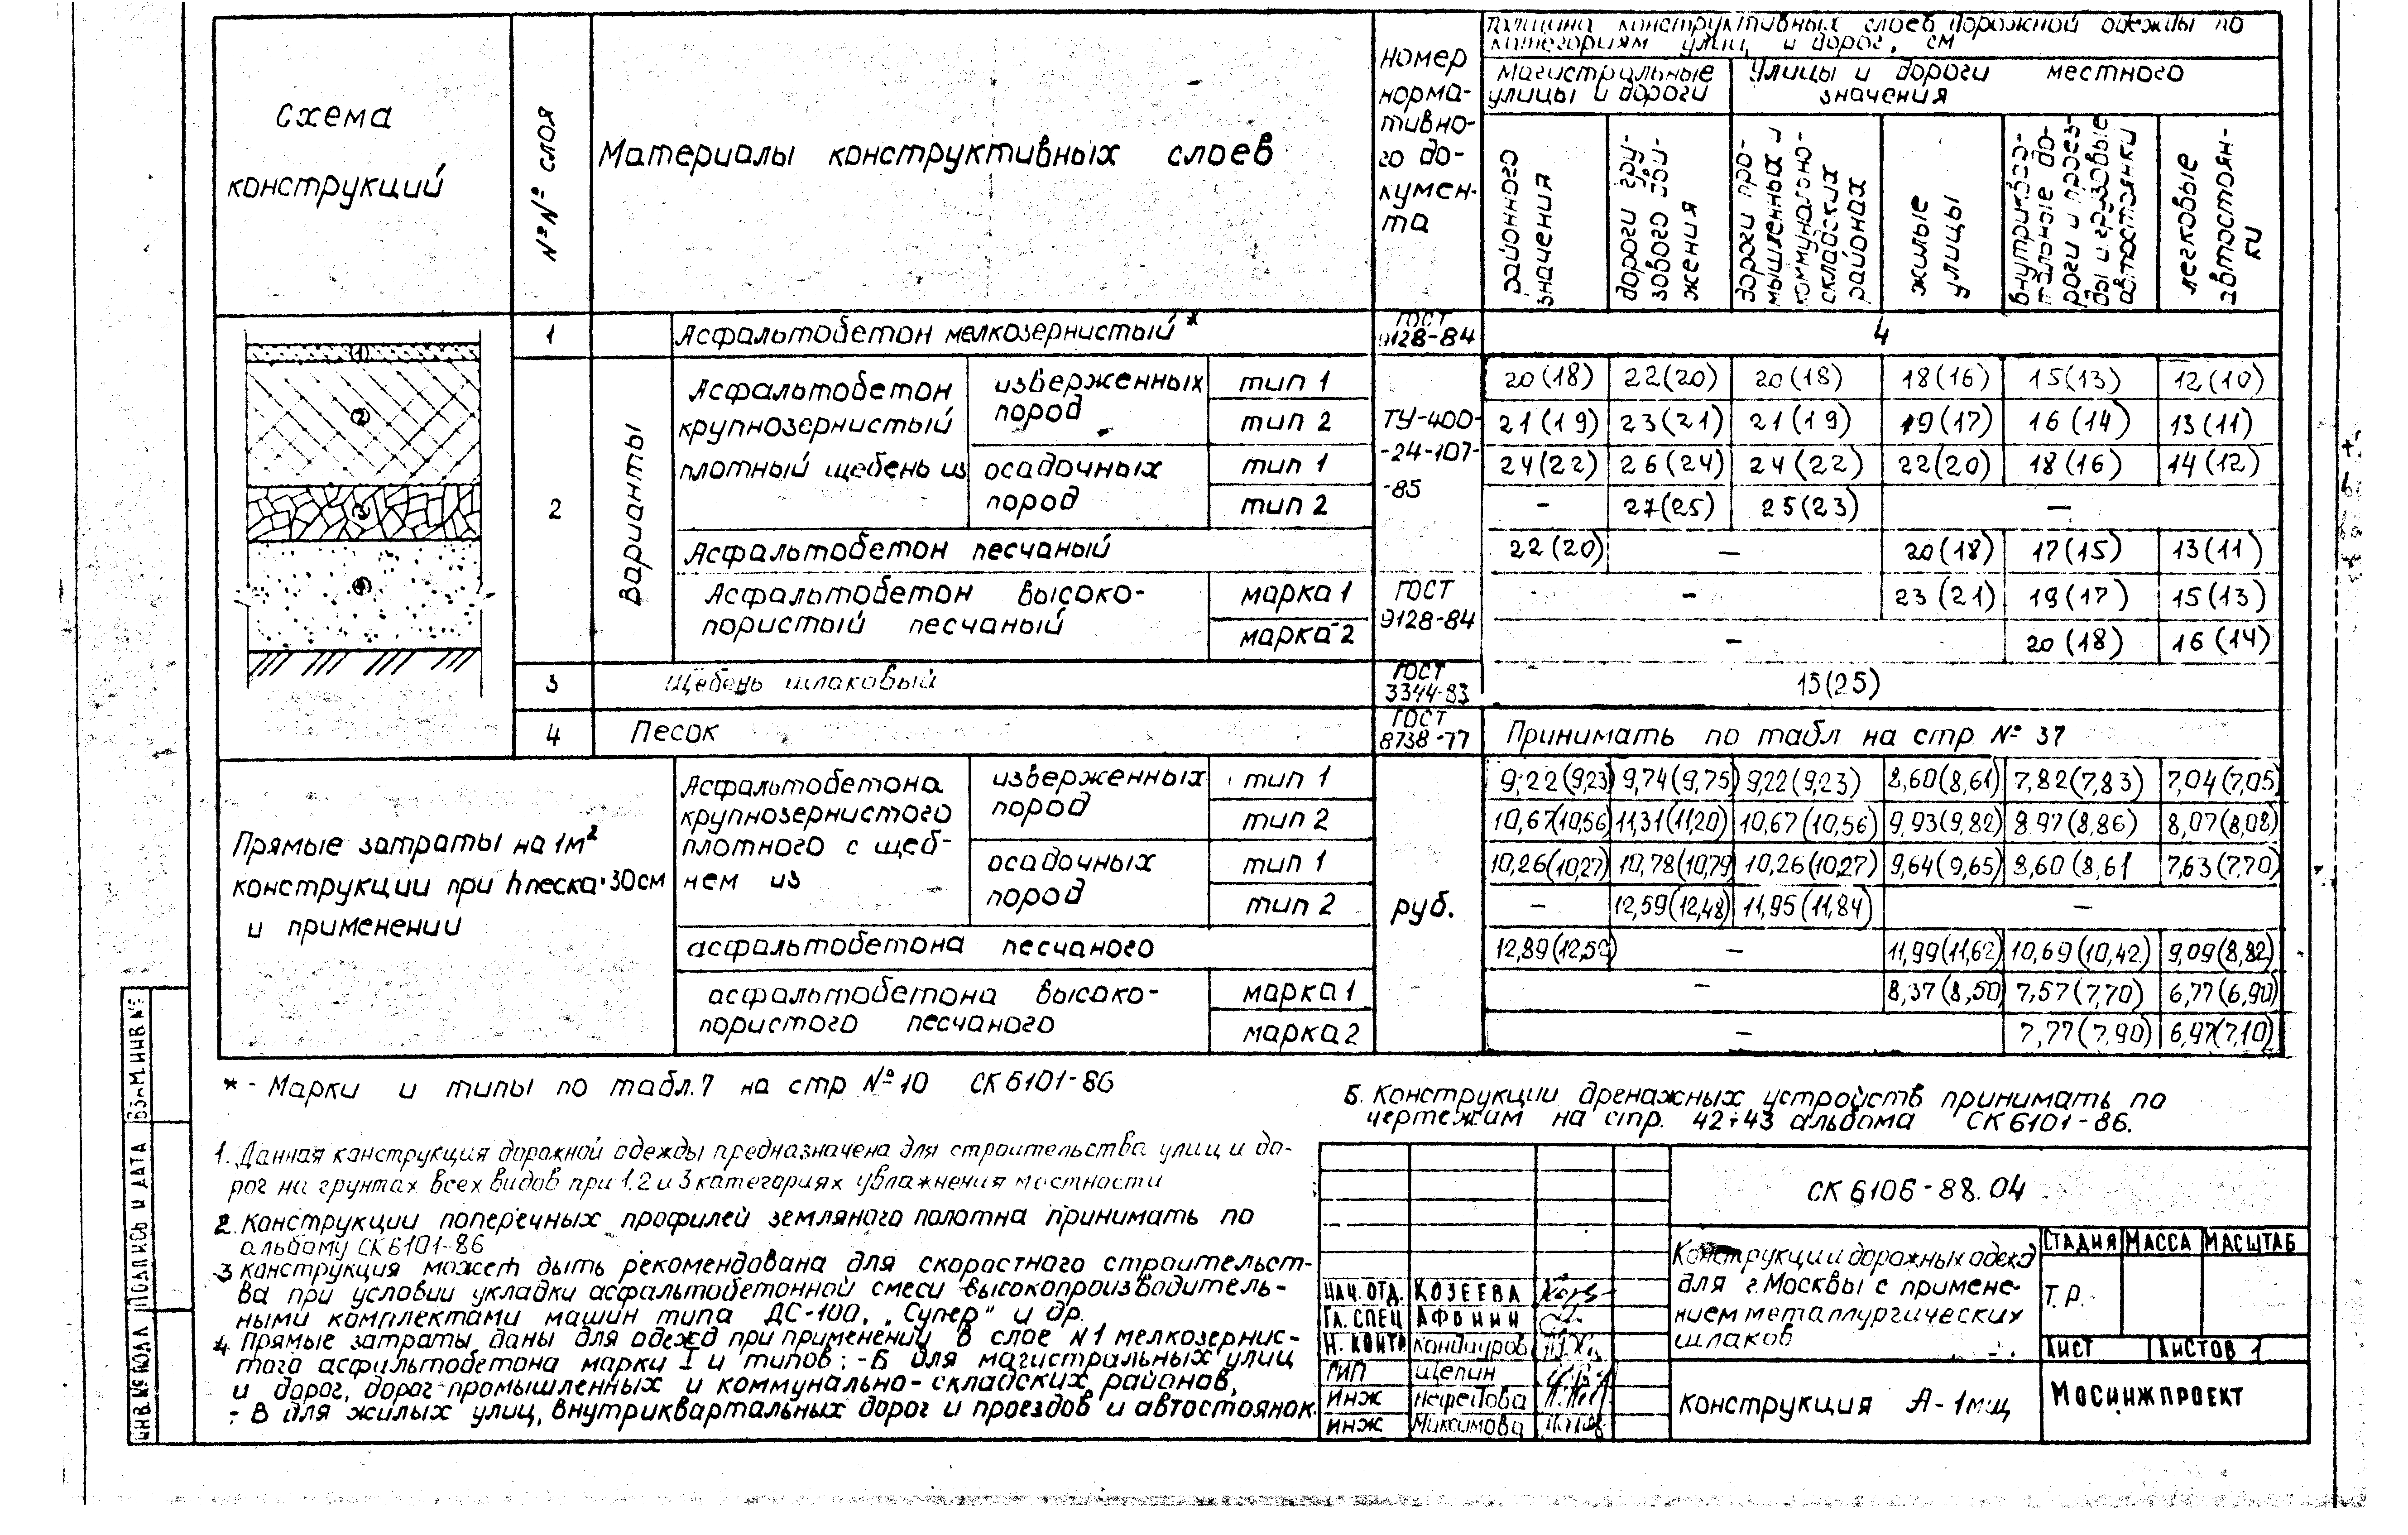 схема
конструкций
№№ слоя
Материалы конструктивных слоев
номер
норма-
тивно-
го до-
кумен-
та
Толщина конструктивных слоев дорожной одежды по
категориям улиц и дорог, см
магистральные
улицы и дороги
Улицы и дороги местного
значения
районного
значения
дороги гру-
зового дви-
жения
дороги про-
мышленных и
коммунально-
складских
районах
жилые
улицы
внутриквар-
тальные до-
роги и проез-
ды и грузовые
автостоянки
легковые
автостоян-
ки
1 Асфальтобетон мелкозернистый* ГОСТ 9128-84 4
1
2
3
4
2
Варианты
Асфальтобетон
крупнозернистый
плотный щебень из
изверженных
пород
осадочных
пород
ТУ-400-
-24-107-
-85
тип 1 20(18) 22(20) 20(18) 18(16) 15(13) 12(10)
тип 2 21(19) 23(21) 21(19) 19(17) 16(14) 13(11)
тип 1 24(22) 26(24) 24(22) 22(20) 18(16) 14(12)
тип 2 - 27(25) 25(23) -
Асфальтобетон песчаный 22(20) - 20(18) 17(15) 13(11)
Асфальтобетон высоко-
пористый песчаный
ГОСТ
9128-84
марка 1 - 23(21) 19(17) 15(13)
марка 2 - 20(18) 16(14)
3 Щебень шлаковый ГОСТ 3344-83 15(25)
4 Песок ГОСТ 8738-77 Принимать по табл. на стр № 37
Прямые затраты на 1м²
конструкции при h песка·30см
и применении
Асфальтобетона
крупнозернистого
плотного с щеб-
нем из
изверженных
пород
осадочных
пород
руб.
тип 1 9,22(9,23) 9,74(9,75) 9,22(9,23) 8,60(8,61) 7,82(7,83) 7,04(7,05)
тип 2 10,67(10,56) 11,31(11,20) 10,67(10,56) 9,93(9,82) 8,97(8,86) 8,07(8,08)
тип 1 10,26(10,27) 10,78(10,79) 10,26(10,27) 9,64(9,65) 8,60(8,61 7,63(7,70)
тип 2 - 12,59(12,48) 11,95(11,84) -
асфальтобетона песчаного 12,89(12,52) - 11,99(11,62) 10,69(10,42) 9,09(8,82)
асфальтобетона высоко-
пористого песчаного
марка 1 - 8,37(8,50) 7,57(7,70) 6,77(6,90)
марка 2 - 7,77(7,90) 6,97(7,10)
* - Марки и типы по табл.7 на стр № 10 СК 6101-86
1. Данная конструкция дорожной одежды предназначена для строительства улиц и до-
рог на грунтах всех видов при 1,2 и 3 категориях увлажнения местности
2. Конструкции поперечных профилей земляного полотна принимать по
альбому СК 6101-86
3 конструкция может быть рекомендована для скоростного строительст-
ва при условии укладки асфальтобетонной смеси высокопроизводитель-
ными комплектами машин типа ДС-100, „Супер" и др.
4 Прямые затраты даны для одежд при применении в слое №1 мелкозернис-
того асфальтобетона марки I и типов: -Б для магистральных улиц
и дорог, дорог промышленных и коммунально-складских районов,
- В для жилых улиц, внутриквартальных дорог и проездов и автостоянок
5. Конструкции дренажных устройств принимать по
чертежам на стр. 42÷43 альбома СК 6101-86.
СК 6106-88.04
Конструкции дорожных одежд
для г.Москвы с примене-
нием металлургических
шлаков
СТАДИЯ МАССА МАСШТАБ
Т.Р.
ЛИСТ ЛИСТОВ 1
Конструкция А-1мщ
МОСИНЖПРОЕКТ
НАЧ.ОТД. КОЗЕЕВА
ГЛ.СПЕЦ АФОНИН
Н.КОНТР Кондиуров
ГИП Щепин
ИНЖ Нефедова
ИНЖ Максимова
ВЗАМ.ИНВ.№
ПОДПИСЬ И ДАТА
ИНВ.№ ПОДЛ